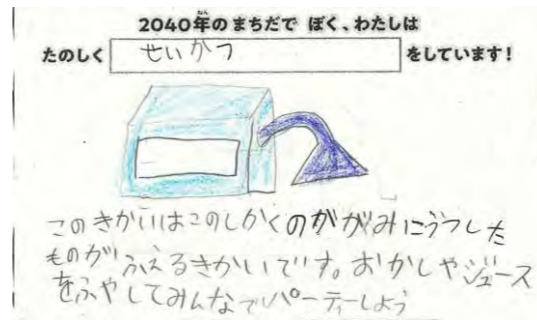 2040年のまちだで ぼく、わたしは
たのしく せいかつ をしています!
このきかいはこのしかくのががみにうつした
ものがふえるきかいです。おかしやジュース
をふやしてみんなでパーティーしよう